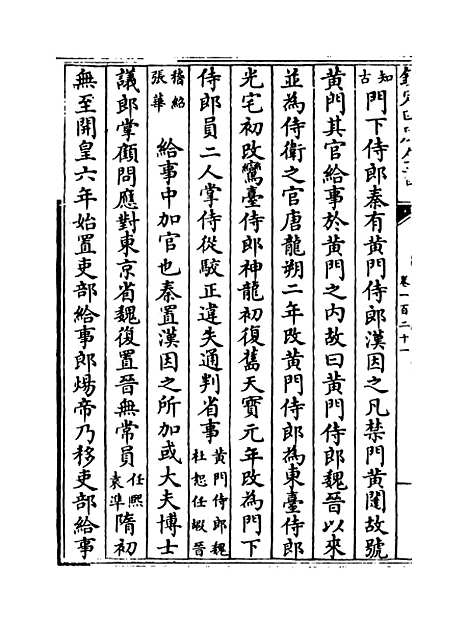 欽定四庫全書
卷一百二十一
知古門下侍郎秦有黃門侍郎漢因之凡禁門黃闥故號
黃門其官給事於黃門之內故曰黃門侍郎魏晉以來
並為侍衛之官唐龍朔二年改黃門侍郎為東臺侍郎
光宅初改鸞臺侍郎神龍初復舊天寶元年改為門下
侍郎員二人掌侍從駮正違失通判省事黃門侍郎魏杜恕任嘏晉
嵇紹張華給事中加官也秦置漢因之所加或大夫博士
議郎掌顧問應對東京省魏復置晉無常員任熙袁準隋初
無至開皇六年始置吏部給事郎煬帝乃移吏部給事